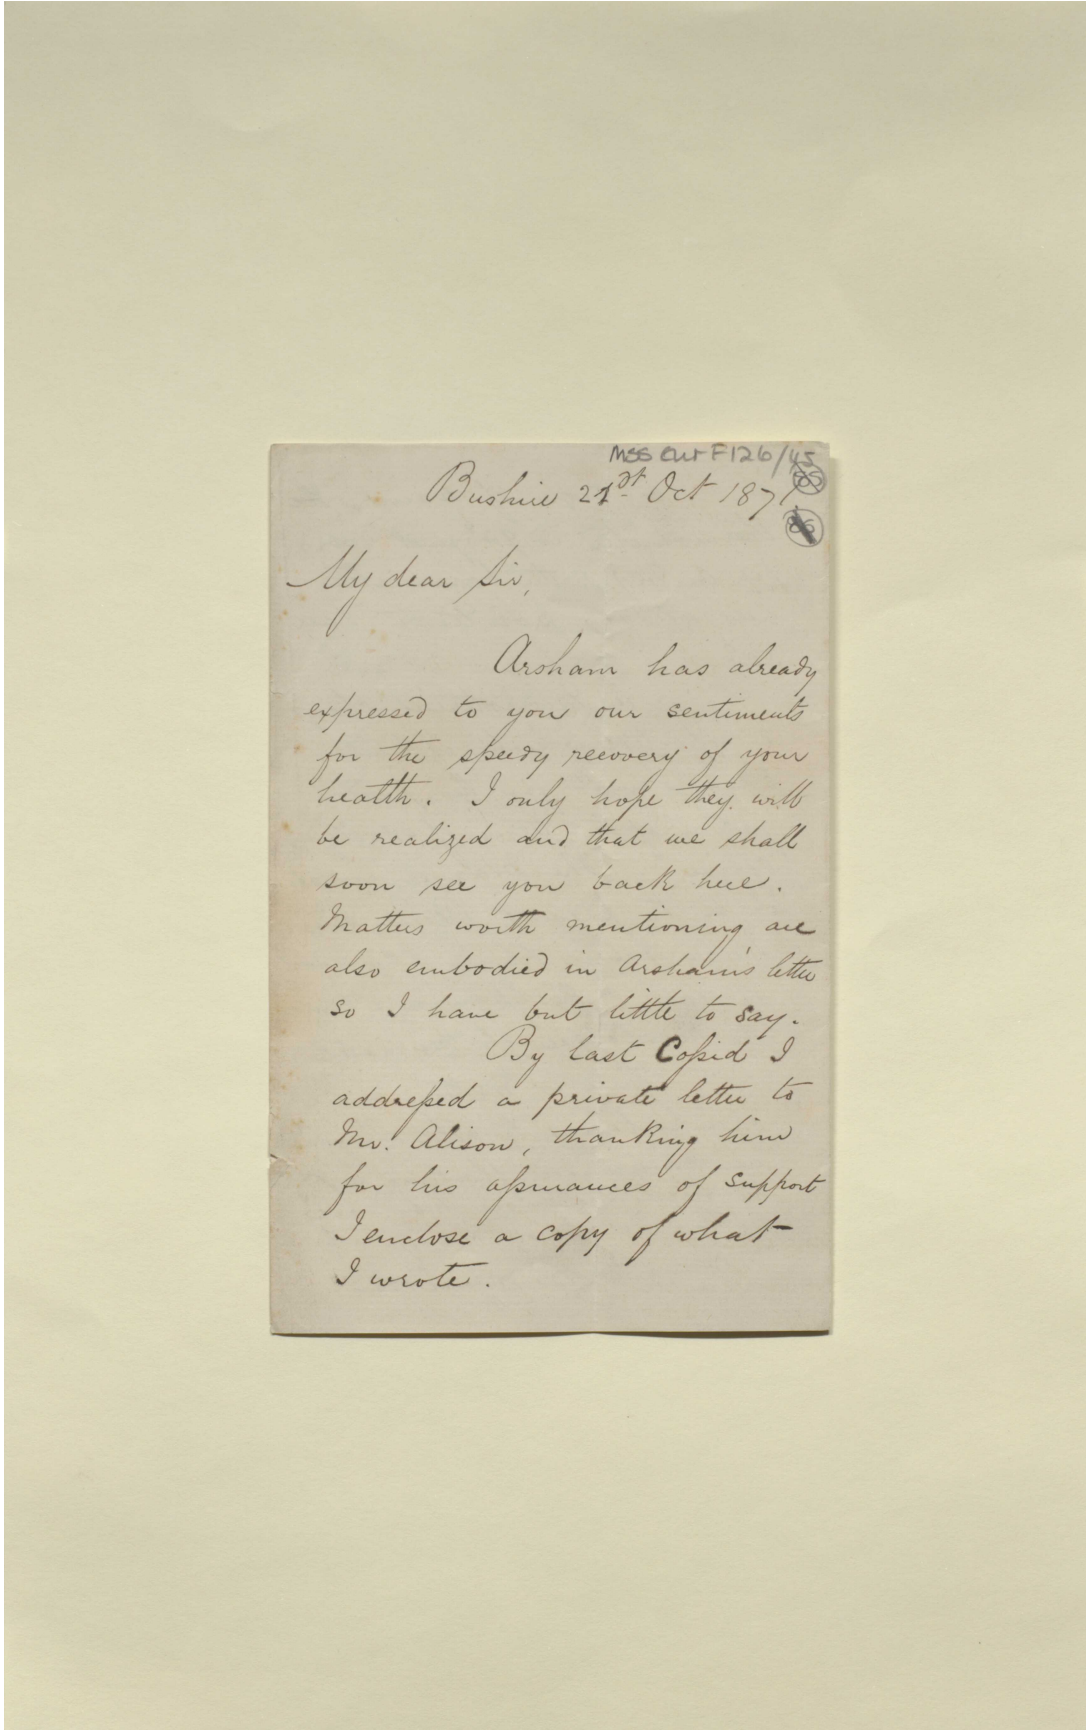 Mss Eur F126/45
85
86
Bushire 21st Oct 1871.
My dear Sir,
Arsham has already
expressed to you our sentiments
for the speedy recovery of your
health. I only hope they will
be realized and that we shall
soon see you back here.
Matters worth mentioning are
also embodied in Arsham's letter
so I have but little to say.
By last Cossid I
addressed a private letter to
Mr. Alison, thanking him
for his assurances of support
I enclose a copy of what
I wrote.